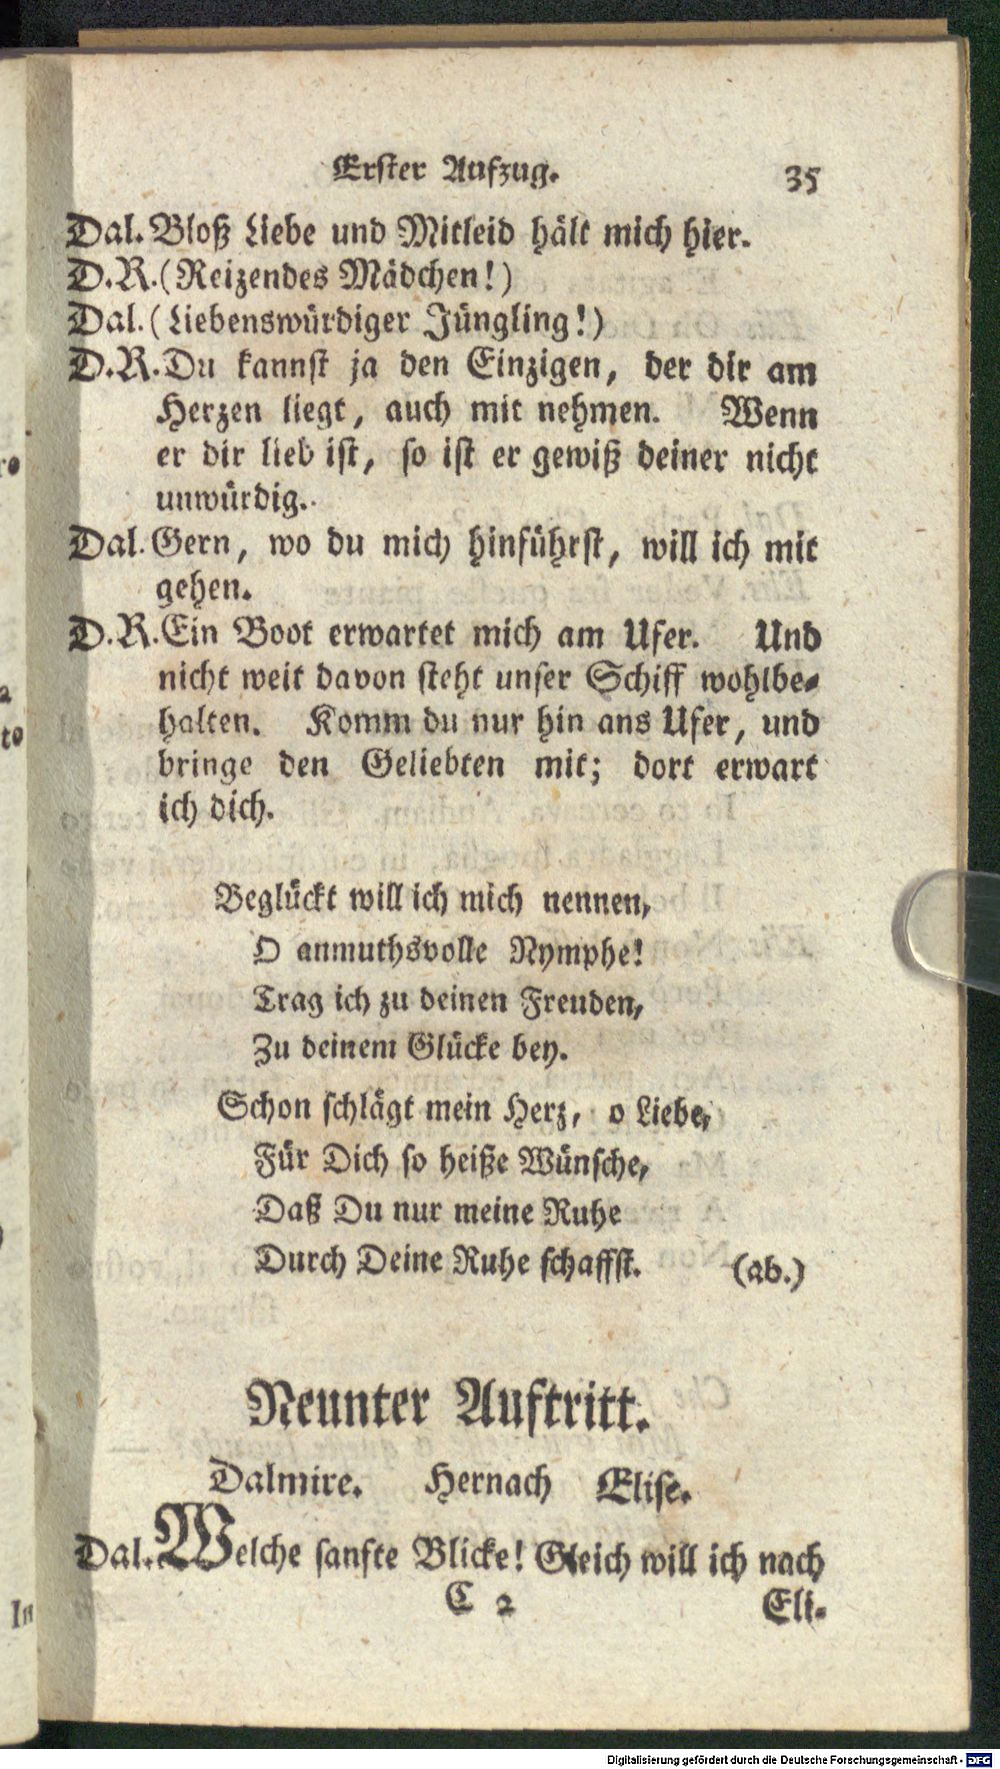 Erster Aufzug. 35
Dal. Bloß Liebe und Mitleid hält mich hier.
D.R. (Reizendes Mädchen!)
Dal. (Liebenswürdiger Jüngling!)
D.R. Du kannst ja den Einzigen, der dir am
Herzen liegt, auch mit nehmen. Wenn
er dir lieb ist, so ist er gewiß deiner nicht
unwürdig.
Dal. Gern, wo du mich hinführst, will ich mit
gehen.
D.R. Ein Boot erwartet mich am Ufer. Und
nicht weit davon steht unser Schiff wohlbe-
halten. Komm du nur hin ans Ufer, und
bringe den Geliebten mit; dort erwart
ich dich.
Beglückt will ich mich nennen,
O anmuthsvolle Nymphe!
Trag ich zu deinen Freuden,
Zu deinem Glücke bey.
Schon schlägt mein Herz, o Liebe,
Für Dich so heiße Wünsche,
Daß Du nur meine Ruhe
Durch Deine Ruhe schaffst. (ab.)
Neunter Auftritt.
Dalmire. Hernach Elise.
Dal. Welche sanfte Blicke! Gleich will ich nach
C 2 Eli-
Digitalisierung gefördert durch die Deutsche Forschungsgemeinschaft - DFG